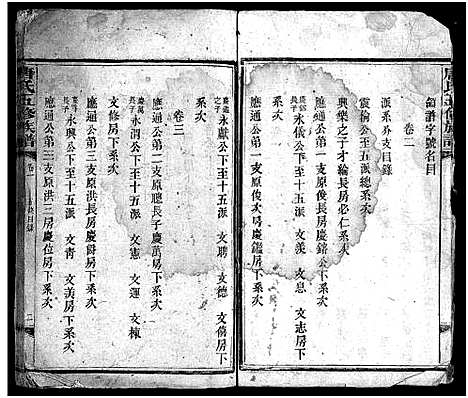 領譜字號名目
卷二
派系分支目錄
震倫公至五派總系次
興樂之子才綸長房必仁系次
應通公第一支原俊長房慶鎔公下系次
永儀公下至十五派 文羨 文息 文志房下
系次
應通公第一支原俊次房慶鑑房下系次
之子 永獻公下至十五派 文聘 文德 文傍房下
系次
卷三
應通公第二支原聰長子慶萬房下系次
慶萬長子 永渭公下至十五派 文憲 文運 文棟
文修房下系次
應通公第三支原洪長房慶爵房下系次
長子 永興公下至十五派 文青 文美房下系次
應通公第三支原洪三房慶位房下系次
唐氏五修族譜
卷一
目錄
二